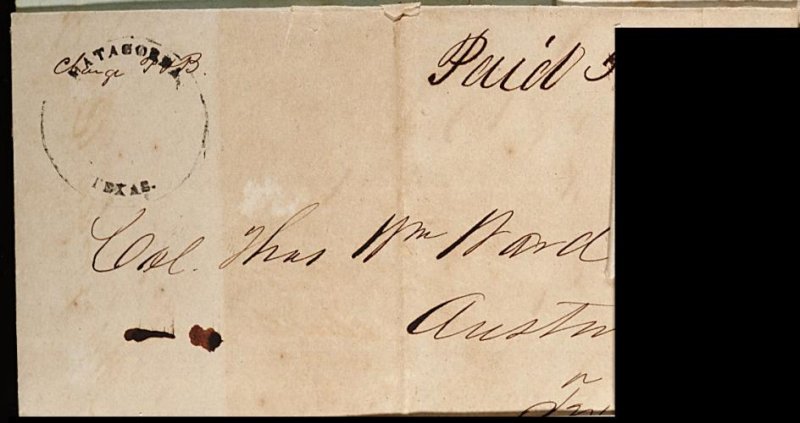 MATAGORDA
Charge
Paid
TEXAS.
Col. Thos Wm Ward
Austin